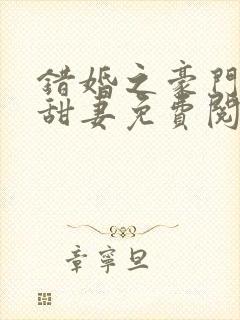 錯婚之豪門
甜妻免費閱
章寧旦